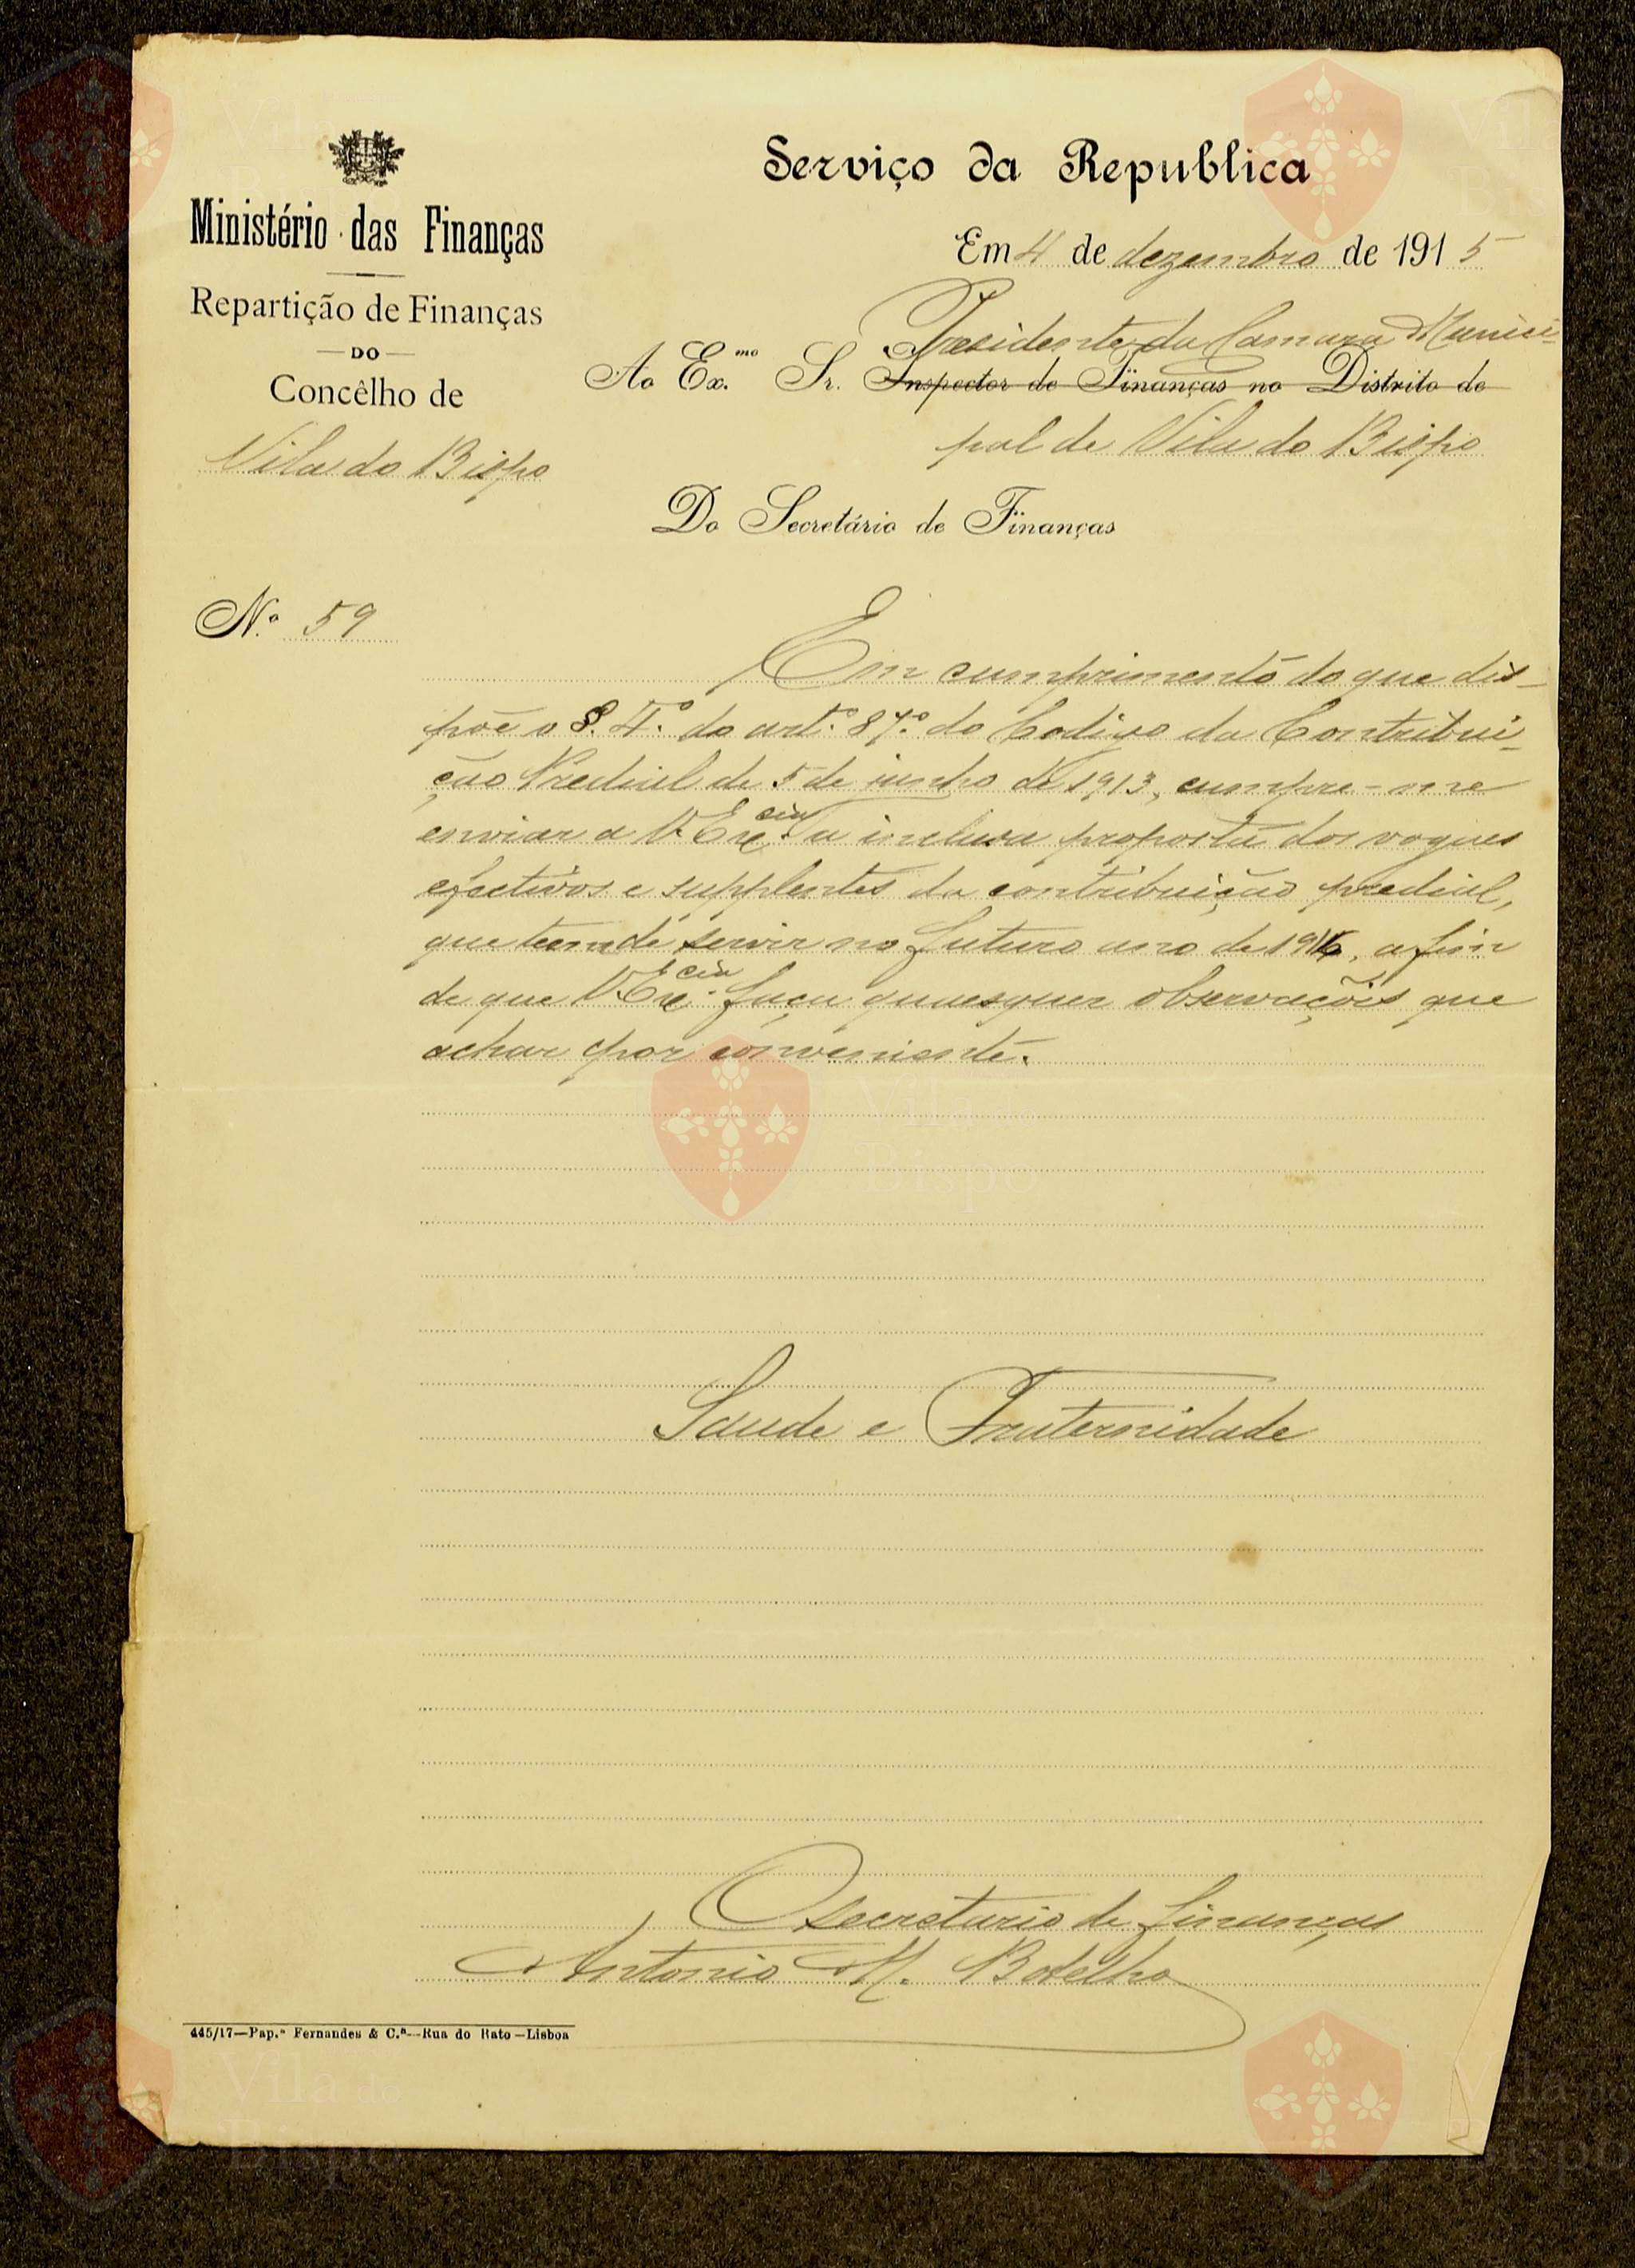 Ministério das Finanças
Repartição de Finanças
DO
Concêlho de
Vila do Bispo
Serviço da Republica
Em 4 de dezembro de 1915
Presidente da Camara Munici-
Ao Ex.mo Sr. Inspector de Finanças no Distrito de
pal de Vila do Bispo
Do Secretário de Finanças
N.o 59
Em cumprimento do que dis-
põe o §. 4.o do art.o 87.o do Codigo da Contribui-
ção Predial de 5 de junho de 1913, cumpre-me
enviar a V. Exc.cia a inclusa proposta dos vogaes
efectivos e supplentes da contribuição predial,
que teem de servir no futuro ano de 1916, a fim
de que V. Exc.cia faça quaesquer observações que
achar por conveniente.
Saude e Fraternidade
O Secretario de finanças
Antonio M. Botelho
445/17—Pap.a Fernandes & C.a—Rua do Rato—Lisboa
Vila do
Bispo